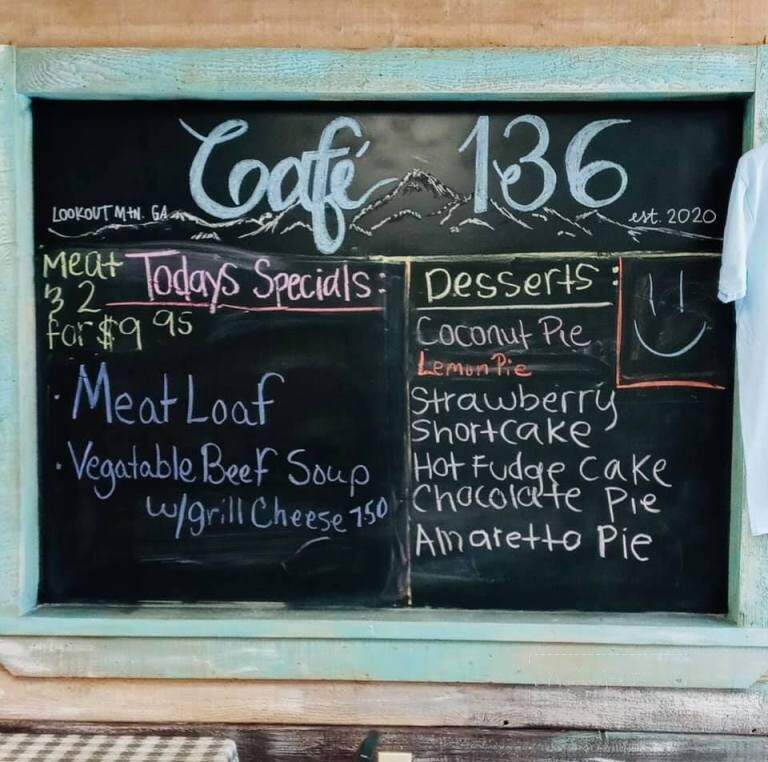 Café 136
LOOKOUT Mtn. GA
est. 2020
Meat
& 2
for $9 95
Todays Specials:
· Meat Loaf
· Vegatable Beef Soup
w/grill Cheese 750
Desserts:
Coconut Pie
Lemon Pie
Strawberry
Shortcake
Hot Fudge Cake
Chocolate Pie
Amaretto Pie